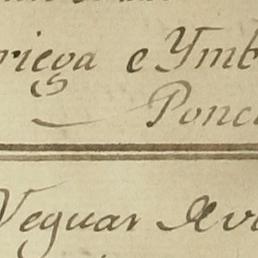 riega e Ymb
Ponc
Veguar Alv